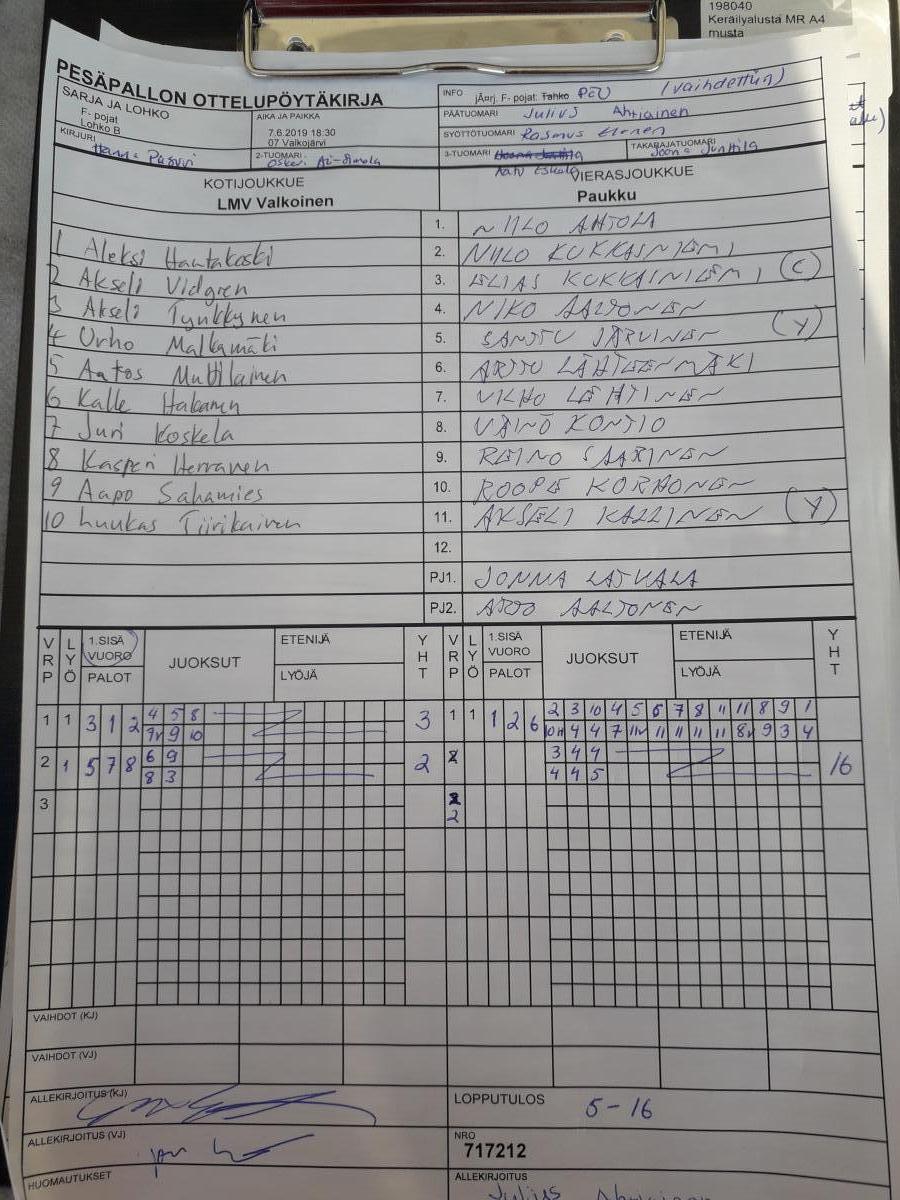 198040
Keräilyalusta MR A4
musta
PESÄPALLON OTTELUPÖYTÄKIRJA
INFO jÃ¤rj. F- pojat: Tahko PeU (vaihdettun)
SARJA JA LOHKO
F- pojat
Lohko B
AIKA JA PAIKKA
7.6.2019 18:30
07 Valkojärvi
PÄÄTUOMARI Julius Ahtiainen
SYÖTTÖTUOMARI Rasmus
KIRJURI
2-TUOMARI
3-TUOMARI
TAKARAJATUOMARI
Joona Junttila
KOTIJOUKKUE
LMV Valkoinen
VIERASJOUKKUE
Paukku
1 Aleksi Hautakoski
2 Akseli Vidgren
3 Akseli Tynkkynen
4 Urho Malkamäki
5 Aatos Mutilainen
6 Kalle Hakanen
7 Juri Koskela
8 Kasperi Herranen
9 Aapo Sahamies
10 Luukas Tiirikainen
1. NIILO AHTOLA
2. NIILO KUKKASNIEMI
3. ELIAS KUKKASNIEMI (C)
4. NIKO AALTONEN
5. SANTTU JÄRVINEN (Y)
6. ARTTU LÄHTEENMÄKI
7. VILHO LEHTINEN
8. VÄINÖ KONTIO
9. REINO SAARINEN
10. ROOPE KORHONEN
11. AKSELI KALLINEN (Y)
12.
PJ1. JONNA LATVALA
PJ2. ATTO AALTONEN
VRP LYÖ 1.SISÄ VUORO PALOT JUOKSUT ETENIJÄ LYÖJÄ YHT VRP LYÖ 1.SISÄ VUORO PALOT JUOKSUT ETENIJÄ LYÖJÄ YHT
1 1 3 1 2 4 5 8 3 1 1 1 2 6 2 3 10 4 5 6 7 8 11 11 8 9 1
7v 9 10 10v 4 4 7 11v 11 11 11 11 8v 9 3 4
2 1 5 7 8 6 9 2 2 3 4 4 16
8 3 4 4 5
3
2
VAIHDOT (KJ)
VAIHDOT (VJ)
ALLEKIRJOITUS (KJ)
LOPPUTULOS 5-16
ALLEKIRJOITUS (VJ)
NRO
717212
HUOMAUTUKSET
ALLEKIRJOITUS
Julius Ahtiainen